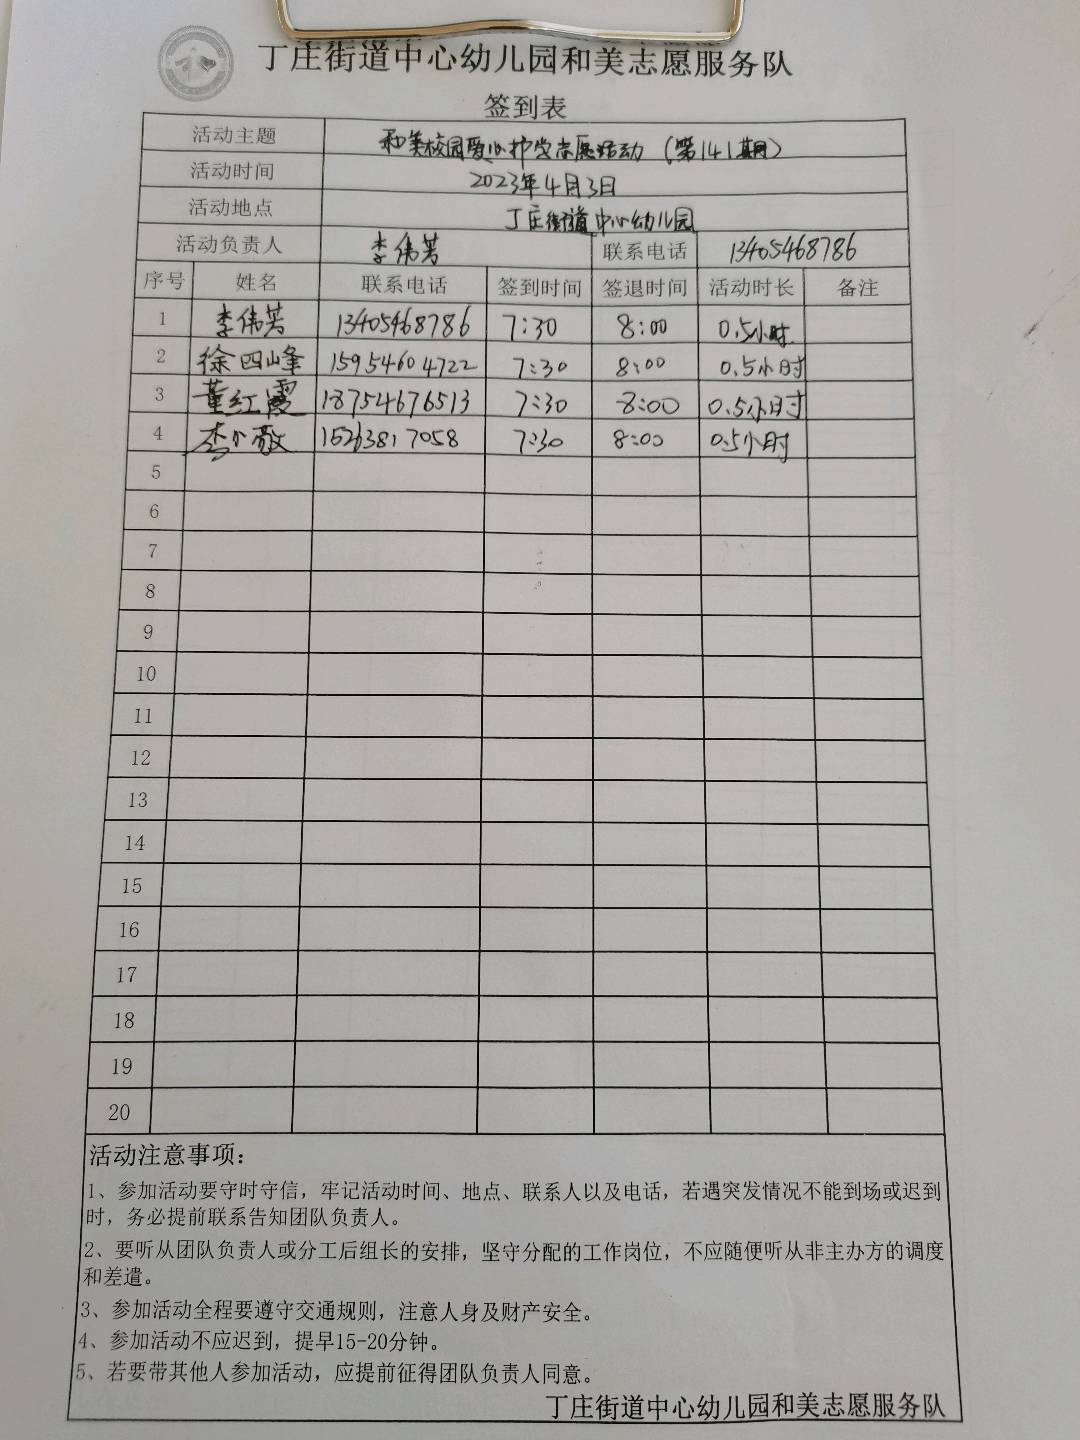 丁庄街道中心幼儿园和美志愿服务队
签到表
活动主题 和美校园爱心护学志愿活动（第141期）
活动时间 2023年4月3日
活动地点 丁庄街道中心幼儿园
活动负责人 李伟芳 联系电话 13405468786
序号 姓名 联系电话 签到时间 签退时间 活动时长 备注
1 李伟芳 13405468786 7:30 8:00 0.5小时
2 徐四峰 15954604722 7:30 8:00 0.5小时
3 董红霞 18754676513 7:30 8:00 0.5小时
4 15263817058 7:30 8:00 0.5小时
5
6
7
8
9
10
11
12
13
14
15
16
17
18
19
20
活动注意事项：
1、参加活动要守时守信，牢记活动时间、地点、联系人以及电话，若遇突发情况不能到场或迟到
时，务必提前联系告知团队负责人。
2、要听从团队负责人或分工后组长的安排，坚守分配的工作岗位，不应随便听从非主办方的调度
和差遣。
3、参加活动全程要遵守交通规则，注意人身及财产安全。
4、参加活动不应迟到，提早15-20分钟。
5、若要带其他人参加活动，应提前征得团队负责人同意。
丁庄街道中心幼儿园和美志愿服务队